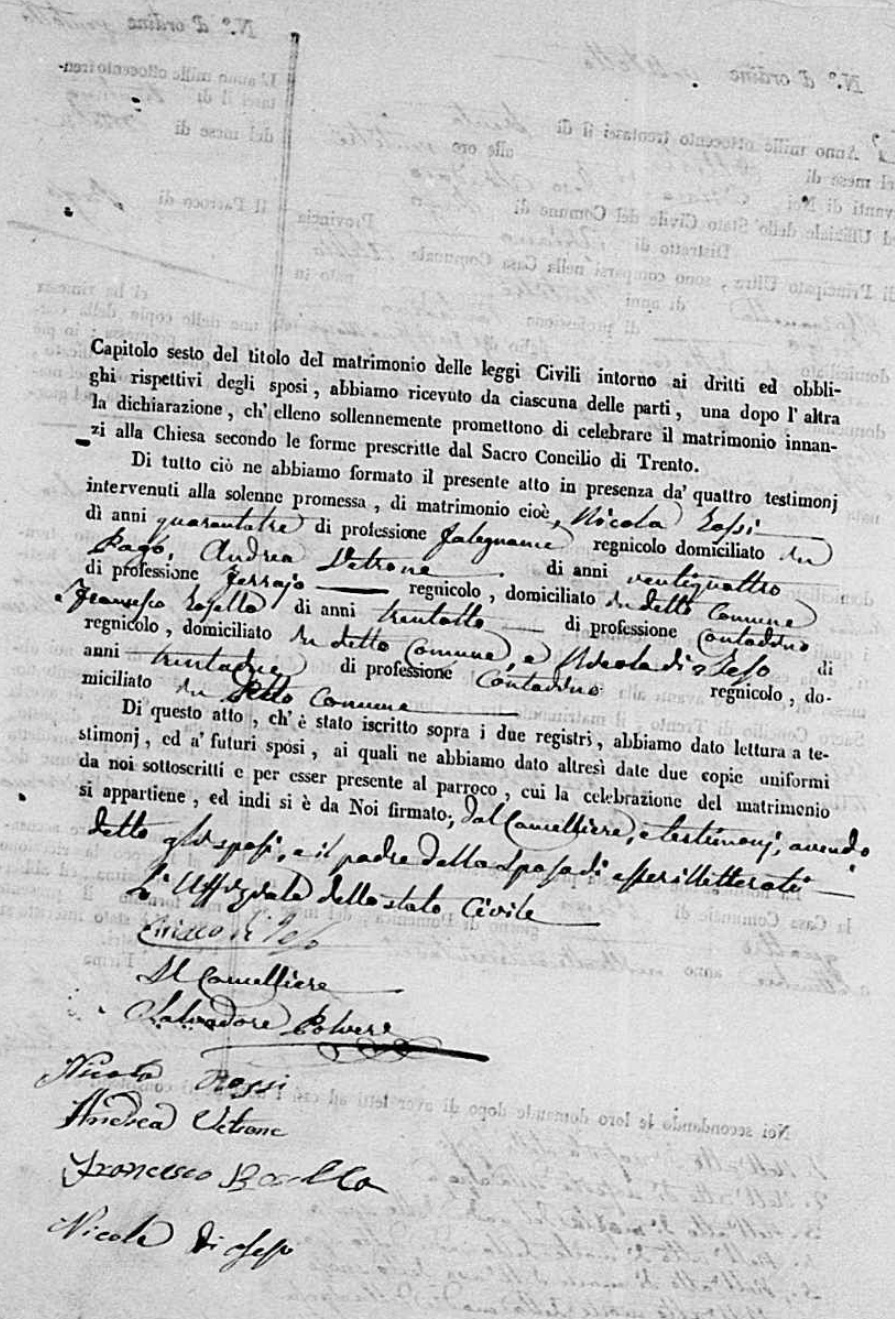 Capitolo sesto del titolo del matrimonio delle leggi Civili intorno ai dritti ed obbli-
ghi rispettivi degli sposi, abbiamo ricevuto da ciascuna delle parti, una dopo l'altra
la dichiarazione, ch'elleno sollennemente promettono di celebrare il matrimonio innan-
zi alla Chiesa secondo le forme prescritte dal Sacro Concilio di Trento.
Di tutto ciò ne abbiamo formato il presente atto in presenza da' quattro testimonj
intervenuti alla solenne promessa, di matrimonio cioè, Nicola Rossi
dì anni quarantatre di professione falegname regnicolo domiciliato in
Pago, Andrea Vetrone di anni ventiquattro
di professione ferrajo regnicolo, domiciliato in detto Comune
Francesco di anni trentotto di professione Contadino
regnicolo, domiciliato in detto Comune, e Nicola di Jeso di
anni trentadue di professione Contadino regnicolo, do-
miciliato in detto Comune
Di questo atto, ch'è stato iscritto sopra i due registri, abbiamo dato lettura a te-
stimonj, ed a' futuri sposi, ai quali ne abbiamo dato altresì date due copie uniformi
da noi sottoscritti e per esser presente al parroco, cui la celebrazione del matrimonio
si appartiene, ed indi si è da Noi firmato, dal Cancelliere, e testimonj, avendo
detto gli sposi, e il padre della sposa di esser illetterati
L'Uffiziale dello stato Civile
di Jeso
Il Cancelliere
Salvadore Polvere
Nicola Rossi
Andrea Vetrone
Francesco
Nicola di Jeso